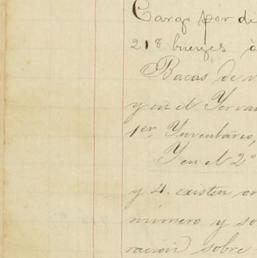 Cargo por di
218 bueyes á
Bacas de
y en el
1er Ynventario,
Y en el 2º
y 4. existen
número y so
ración sobre